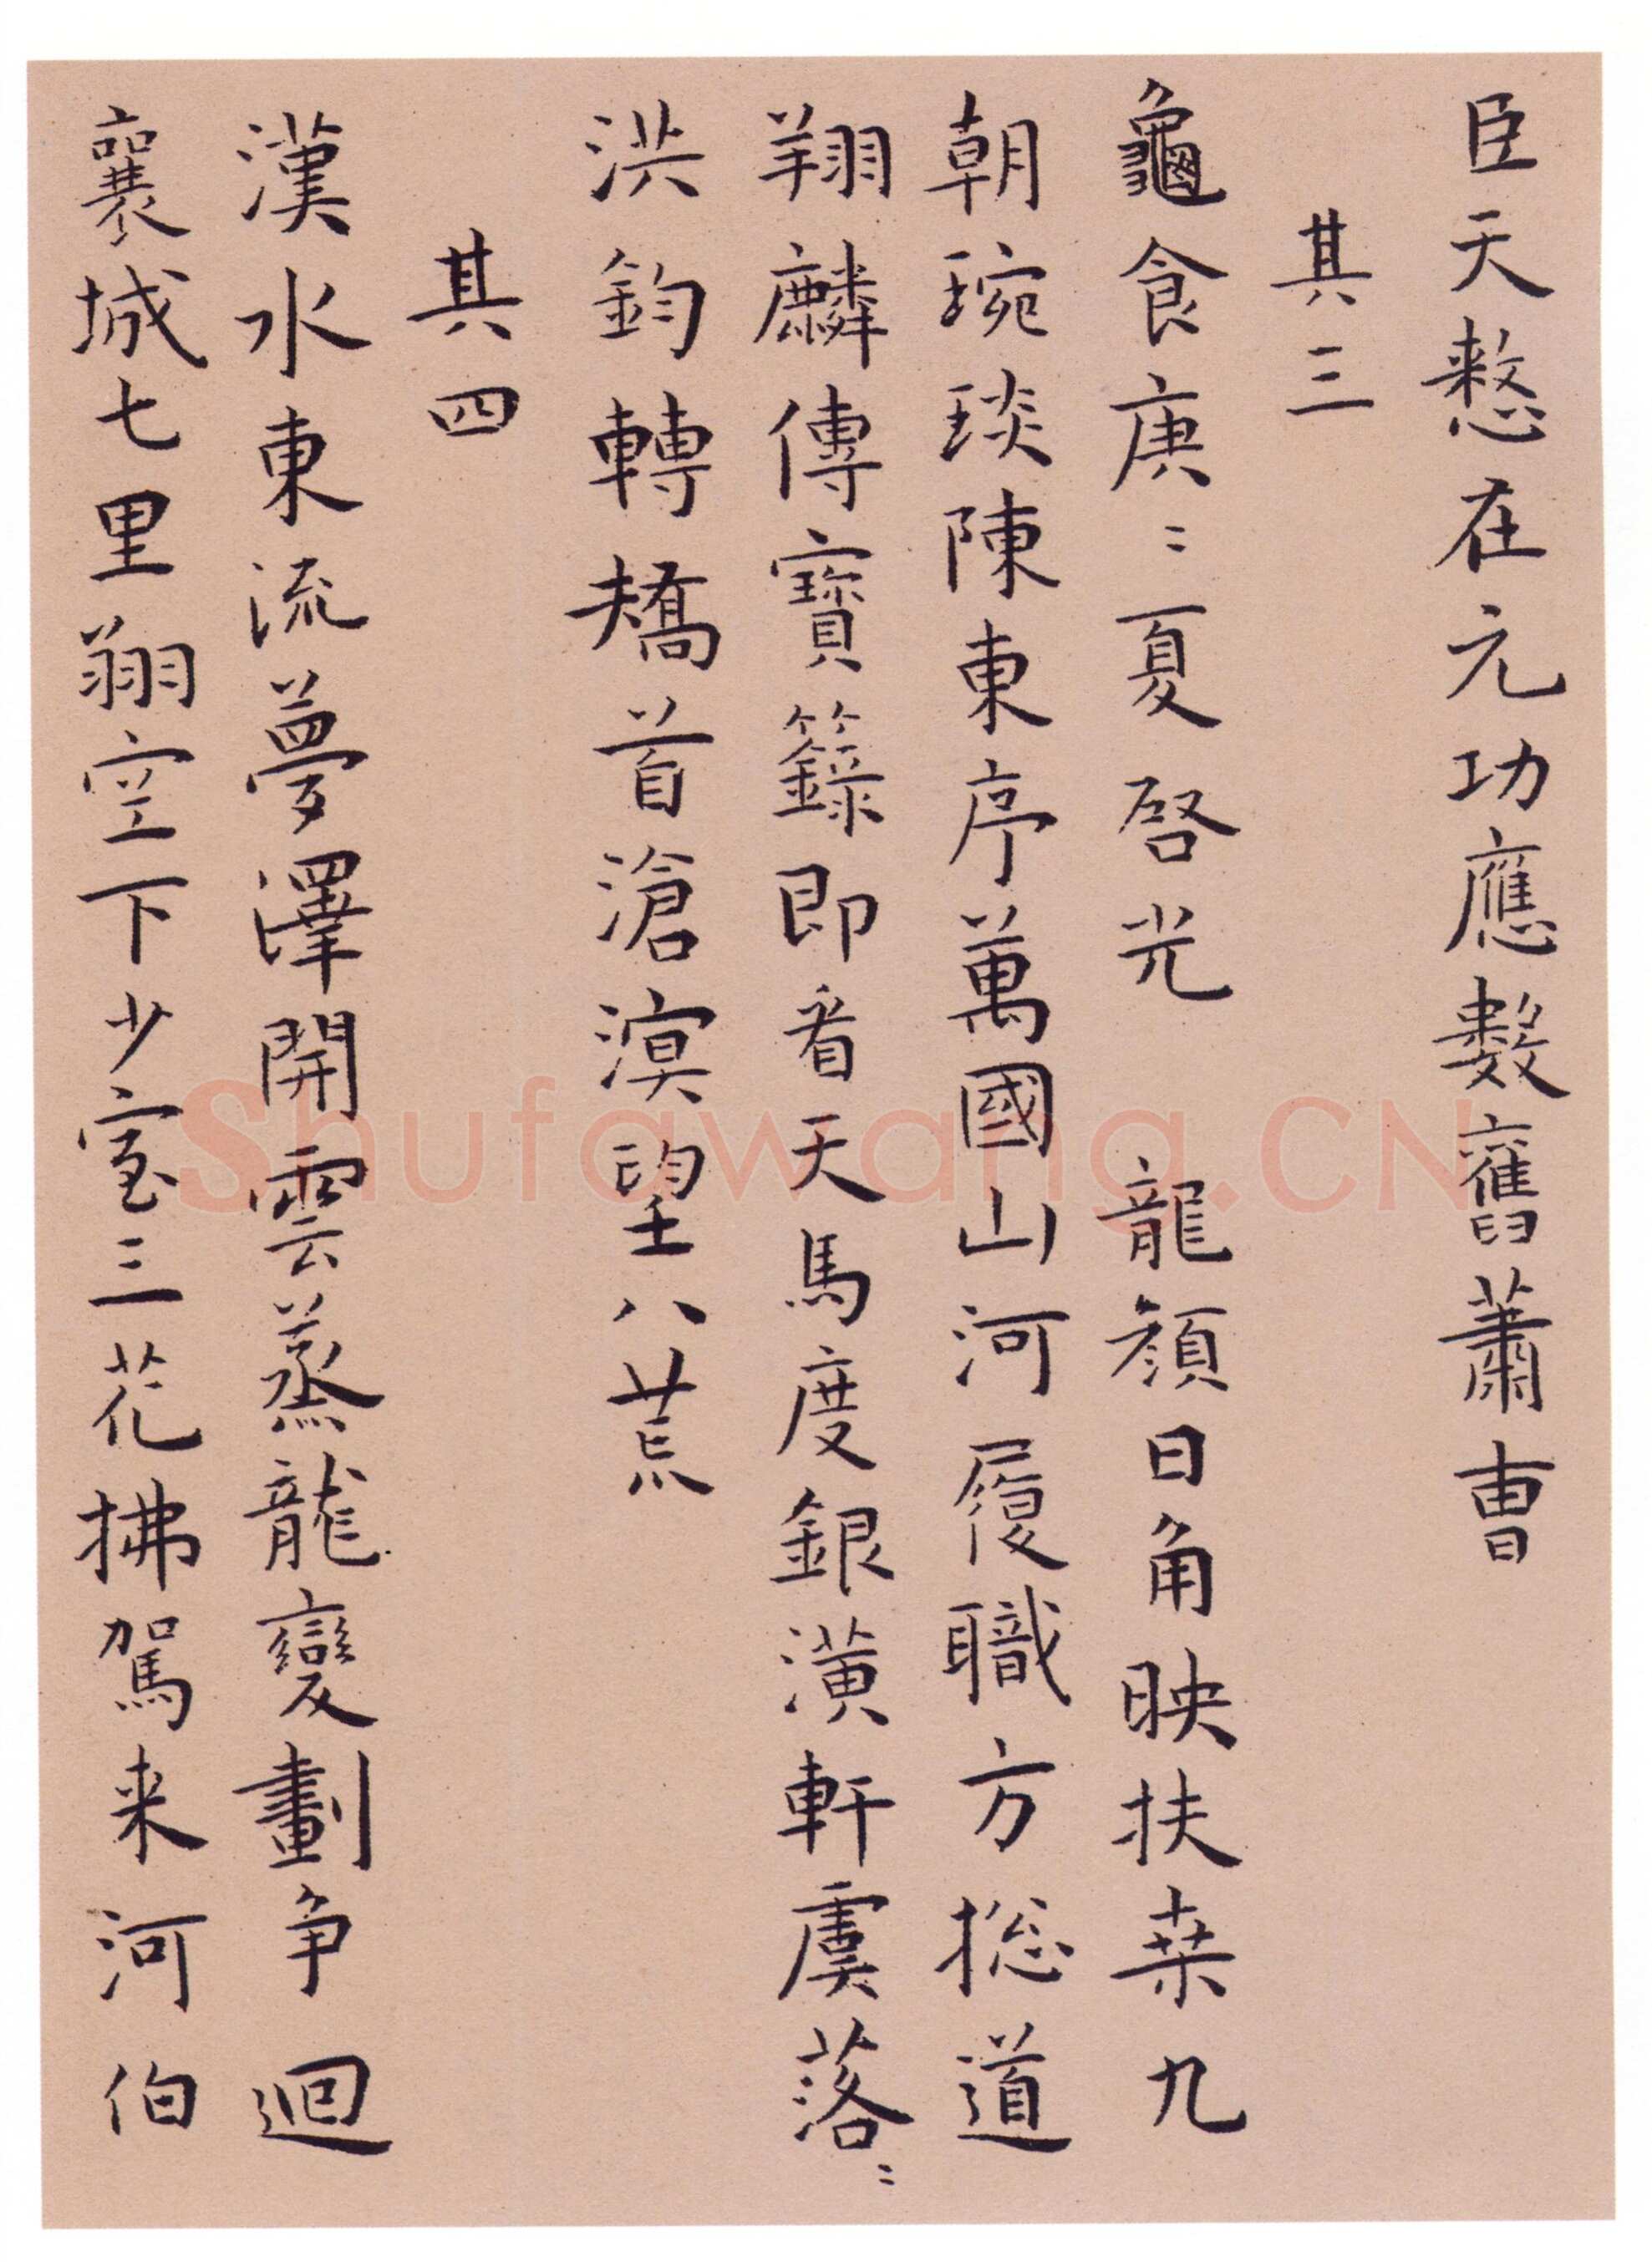 臣天憖在元功應數舊蕭曹
其三
龜食庚〻夏啓光 龍顏日角映扶桑九
朝琬琰陳東序萬國山河履職方揔道
翔麟傳寶籙即看天馬度銀潢軒虞落〻
洪鈞轉矯首滄溟望八荒
其四
漢水東流夢澤開雲蒸龍變劃爭迴
襄城七里翔空下少室三花拂駕来河伯
Shufawang.CN